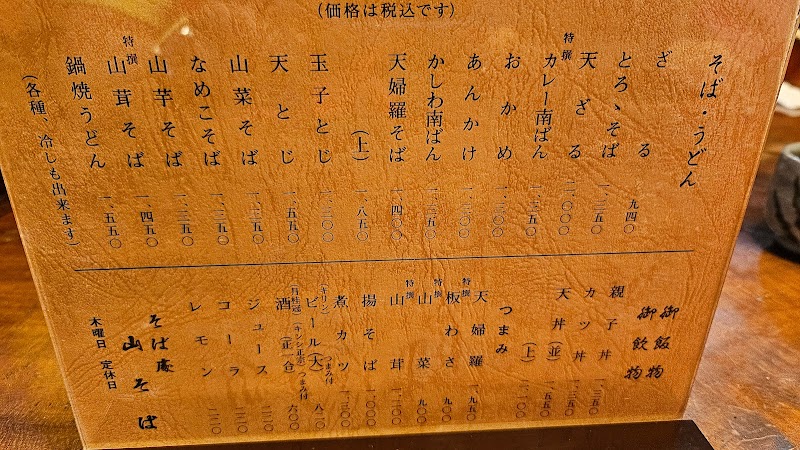 (価格は税込です)
そば・うどん
ざる 九四〇
とろゝそば 一、二五〇
特撰 天ざる 二、〇〇〇
カレー南ばん 一、三五〇
おかめ 一、二〇〇
あんかけ 一、二〇〇
かしわ南ばん 一、二五〇
天婦羅そば 一、四〇〇
(上) 一、八五〇
玉子とじ 一、二〇〇
天とじ 一、五五〇
山菜そば 一、三五〇
なめこそば 一、三五〇
山芋そば 一、三五〇
特撰 山茸そば 一、四五〇
鍋焼うどん 一、五五〇
(各種、冷しも出来ます)
御飯物
御飲物
親子丼 一、二五〇
カツ丼 一、三五〇
天丼(並) 一、五五〇
(上) 二、一〇〇
つまみ
天婦羅 一、九五〇
特撰 板わさ 九〇〇
特撰 山菜 九〇〇
特撰 山茸 一、一〇〇
揚そば 一、〇〇〇
煮カツ 一、二〇〇
キリン ビール(大) つまみ付 八二〇
酒 月桂冠 (キンシ正宗) (正一合) つまみ付 六〇〇
ジュース 二二〇
コーラ 二二〇
レモン 二二〇
そば處
山そば
木曜日 定休日